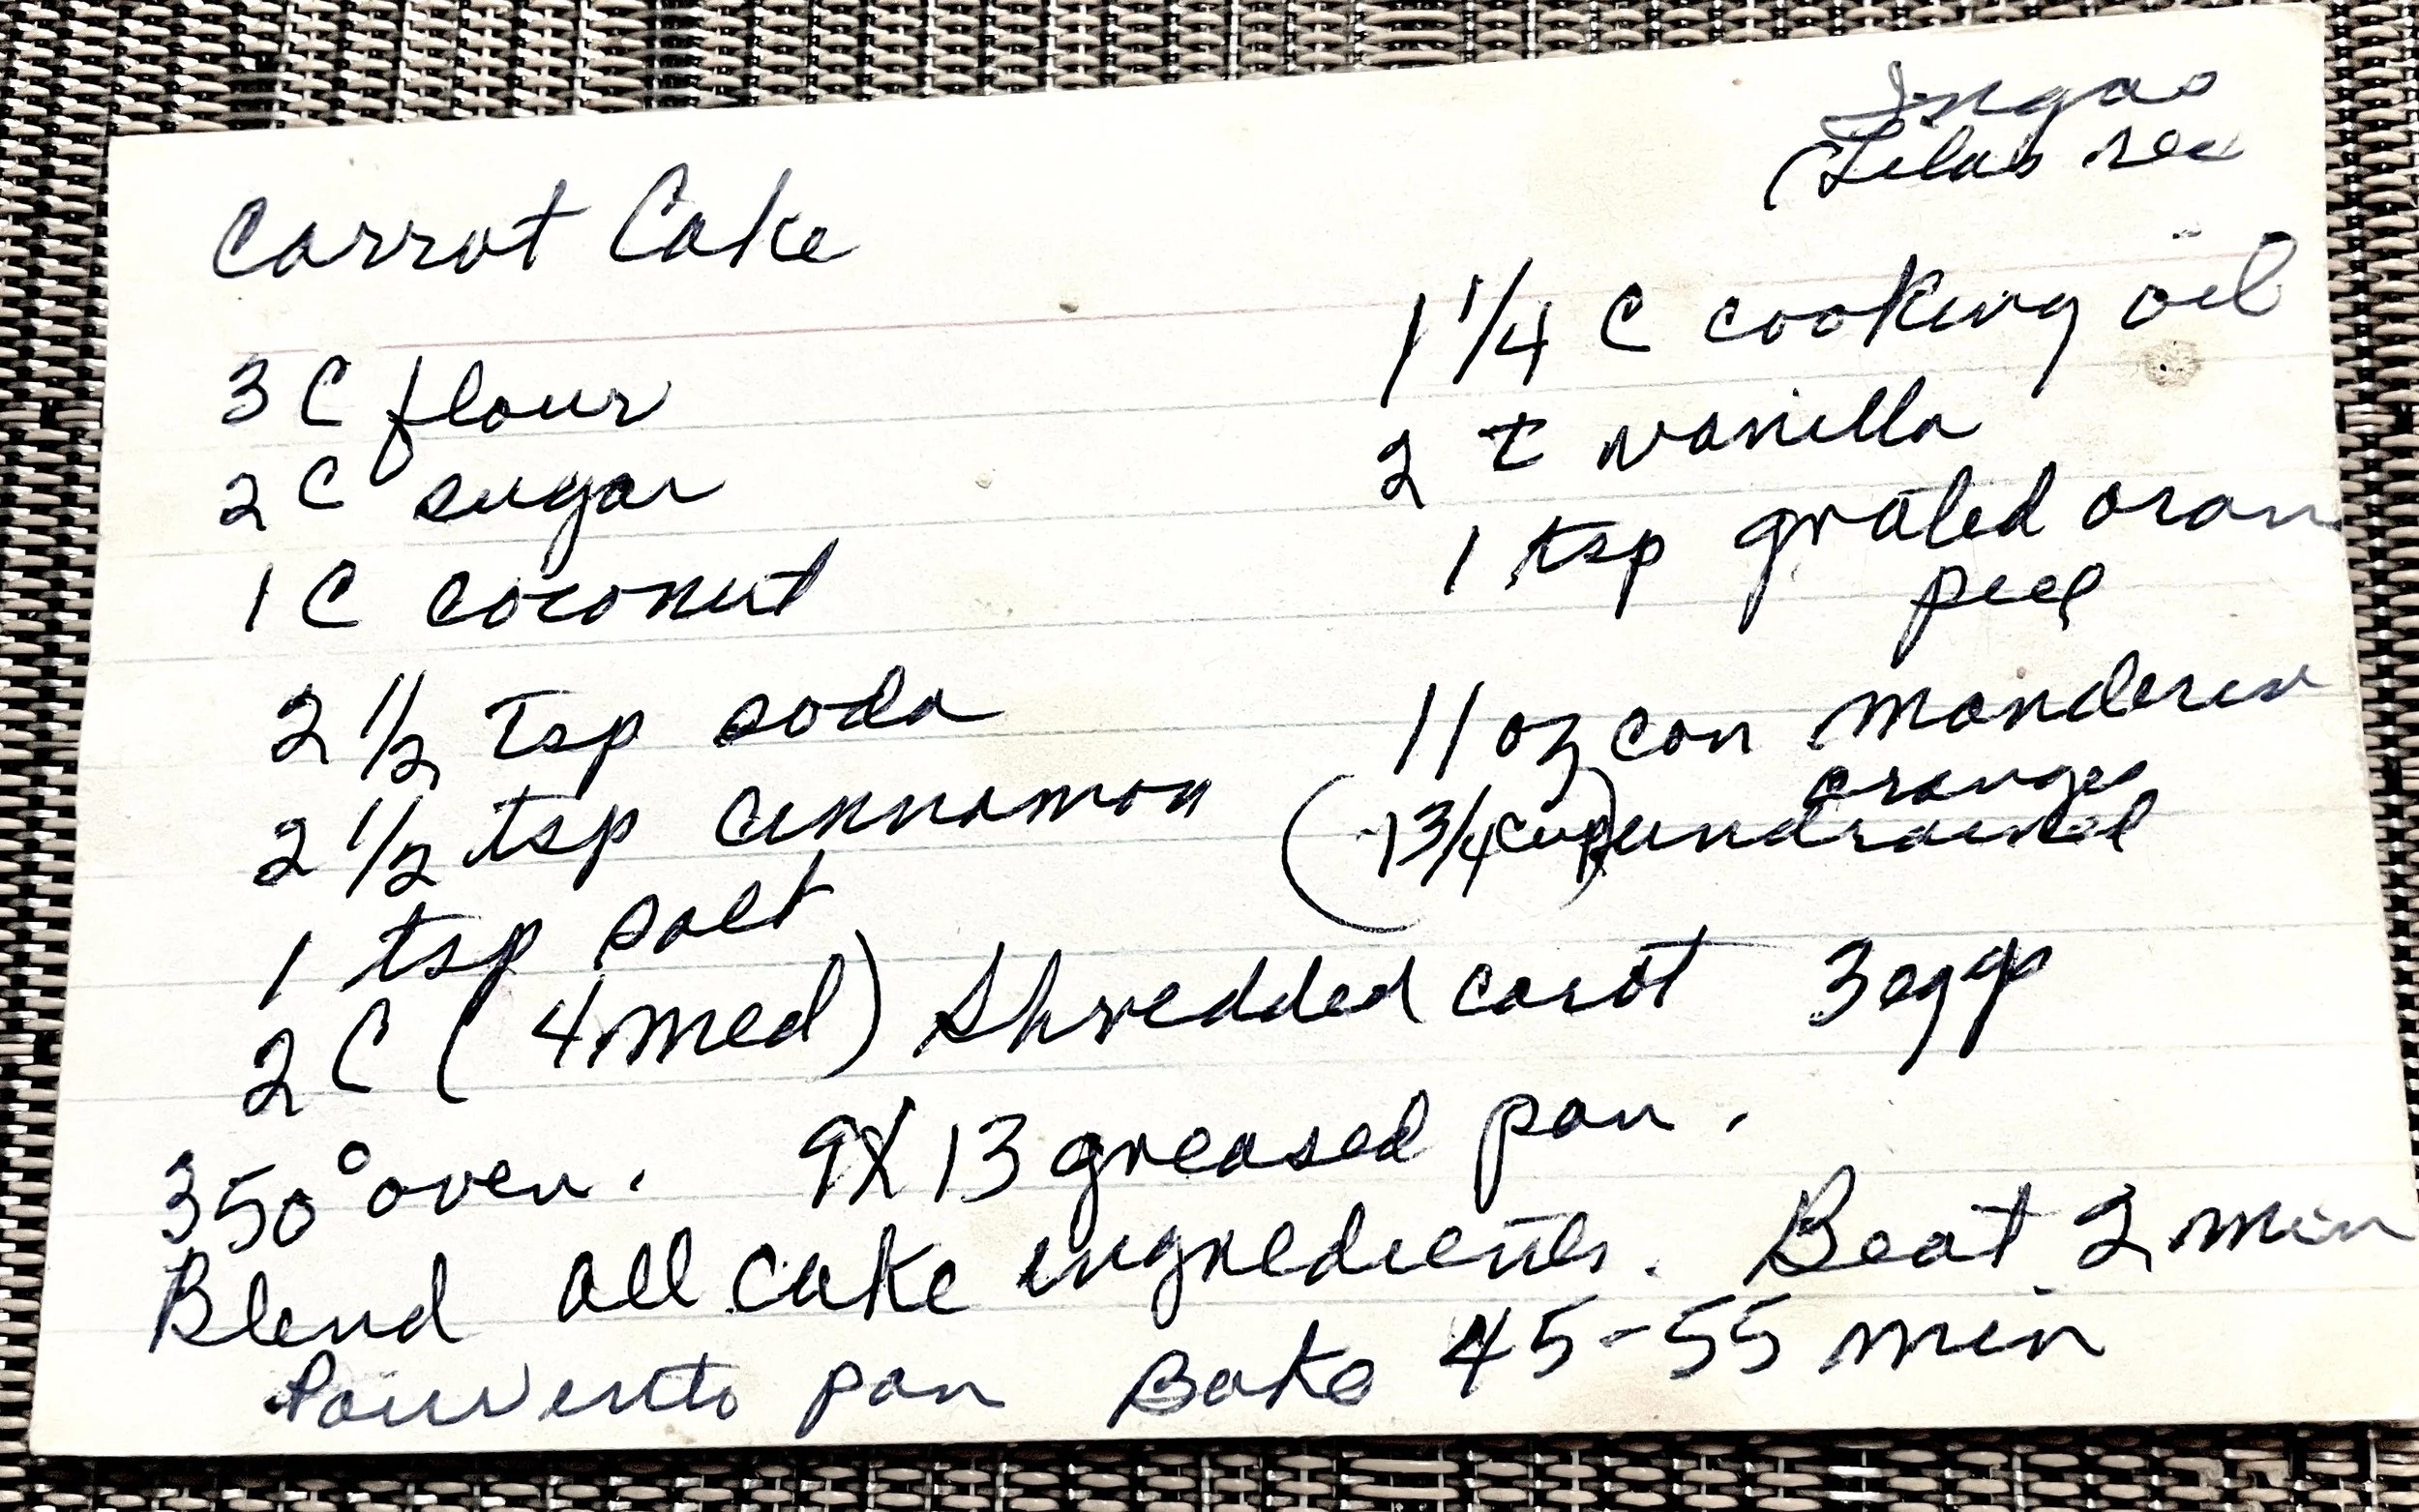 Ingas
(Lilas rec
Carrot Cake
3 C flour
2 C sugar
1 C coconut
2 1/2 Tsp soda
2 1/2 tsp cinnamon
1 tsp salt
2 C (4 med) shredded carot 3 eggs
1 1/4 C cooking oil
2 t vanilla
1 tsp grated oran
peel
11 oz can manderin
oranges
(1 3/4 cup) undrained
350° oven. 9X13 greased pan.
Blend all cake ingredients. Beat 2 min
Pour into pan Bake 45-55 min